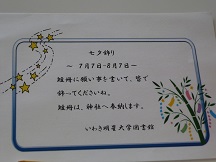 七夕飾り
～ 7月7日-8月7日～
短冊に願い事を書いて、皆で
飾ってくださいね。
短冊は、神社へ奉納します。
いわき明星大学図書館